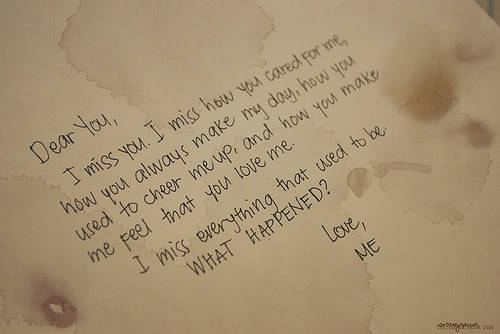 Dear You,
I miss you. I miss how you cared for me,
how you always make my day, how you
used to cheer me up, and how you make
me feel that you love me.
I miss everything that used to be.
WHAT HAPPENED?
Love,
ME